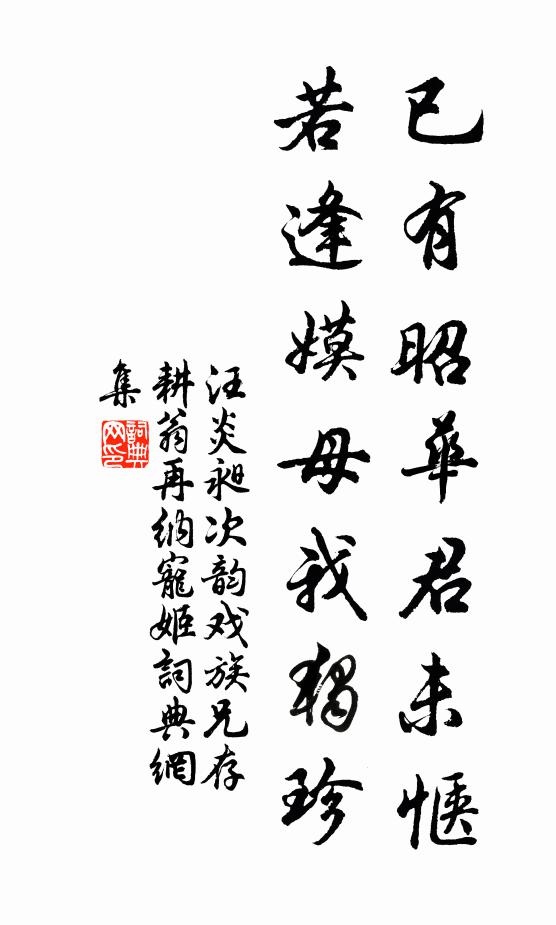 已有昭華君未愜
若逢嫫母我獨珍
汪炎昶次韵戏族兄存
耕翁再纳寵姬詞典網
集
詞典
网印